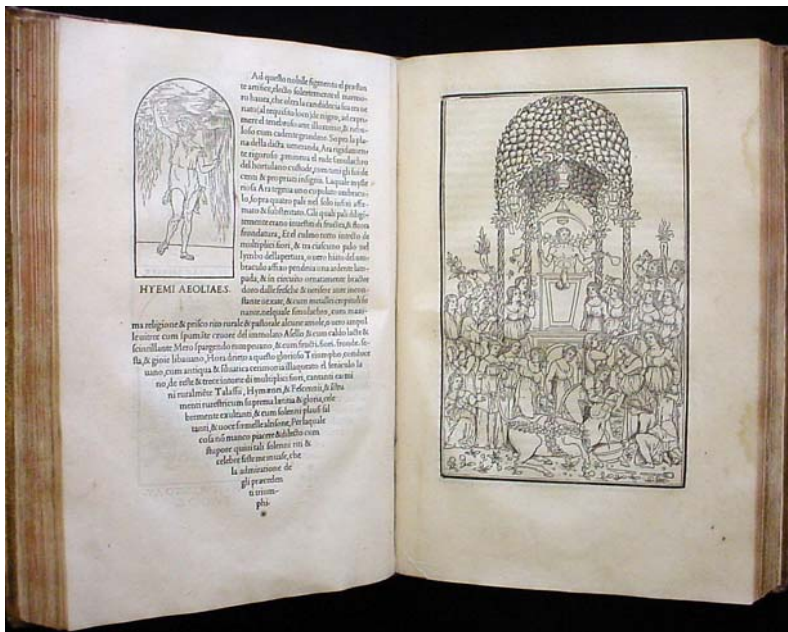 Ad questo nobile figmento el præstan
te artifice, electo solertemente el marmo-
ro hauea, che oltra la candidecia sua era ue
nato (al requisito loco) de nigro, ad expri-
mere el tenebroso aere illumino, & nebu-
loso cum cadente grandine. Sopra la pla-
na della dicta ueneranda Ara rigidamen
te rigoroso, promineua el rude simulachro
del hortulano custode, cum tutti gli sui de-
centi & propriati insignii. Laquale myste
riosa Ara tegeua uno cupulato umbracu-
lo, sopra quatro pali nel solo infixi affir-
mato & substentato. Gli quali pali diligé
temente erano inuestiti di fructea, & florea
frondatura, Et el culmo tutto intecto de
multiplici fiori, & tra ciascuno palo nel
lymbo dellapertura, o uero hiato del um-
braculo affixo pendeua una ardente lam-
pada, & in circuito ornatamente bractee
doro dalle fresche & uerifere aure incon-
stante uexate, & cum metallei crepituli so
nante, nelquale simulachro, cum maxi-
HYEMI AEOLIAE S.
ma religione & prisco rito rurale & pastorale alcune amole, o uero ampul
le uitree cum spumáte cruore del immolato Asello, & cum caldo lacte &
scintillante Mero spargendo rumpeuano, & cum fructi. fiori. fronde. fe-
sta, & gioie libauano, Hora drieto a questo glorioso Triumpho, conduce
uano, cum antiqua & siluatica cerimonia illaqueato el seniculo Ia
no, de reste & trece intorte di multiplici fiori, cantanti carmi
ni ruralmẽte Talassii, Hymænei, & Fescennii, & istru
menti rurestri cum suprema lætitia & gloria, cele
bremente exultanti, & cum solenni plausi sal
tanti, & uoce foemelle altisone, Per laquale
cosa nó manco piacere & dilecto cum
stupore quiui tali solenni riti &
celebre feste me inuase, che
la admiratione de
gli præceden
ti trium-
phi.
*